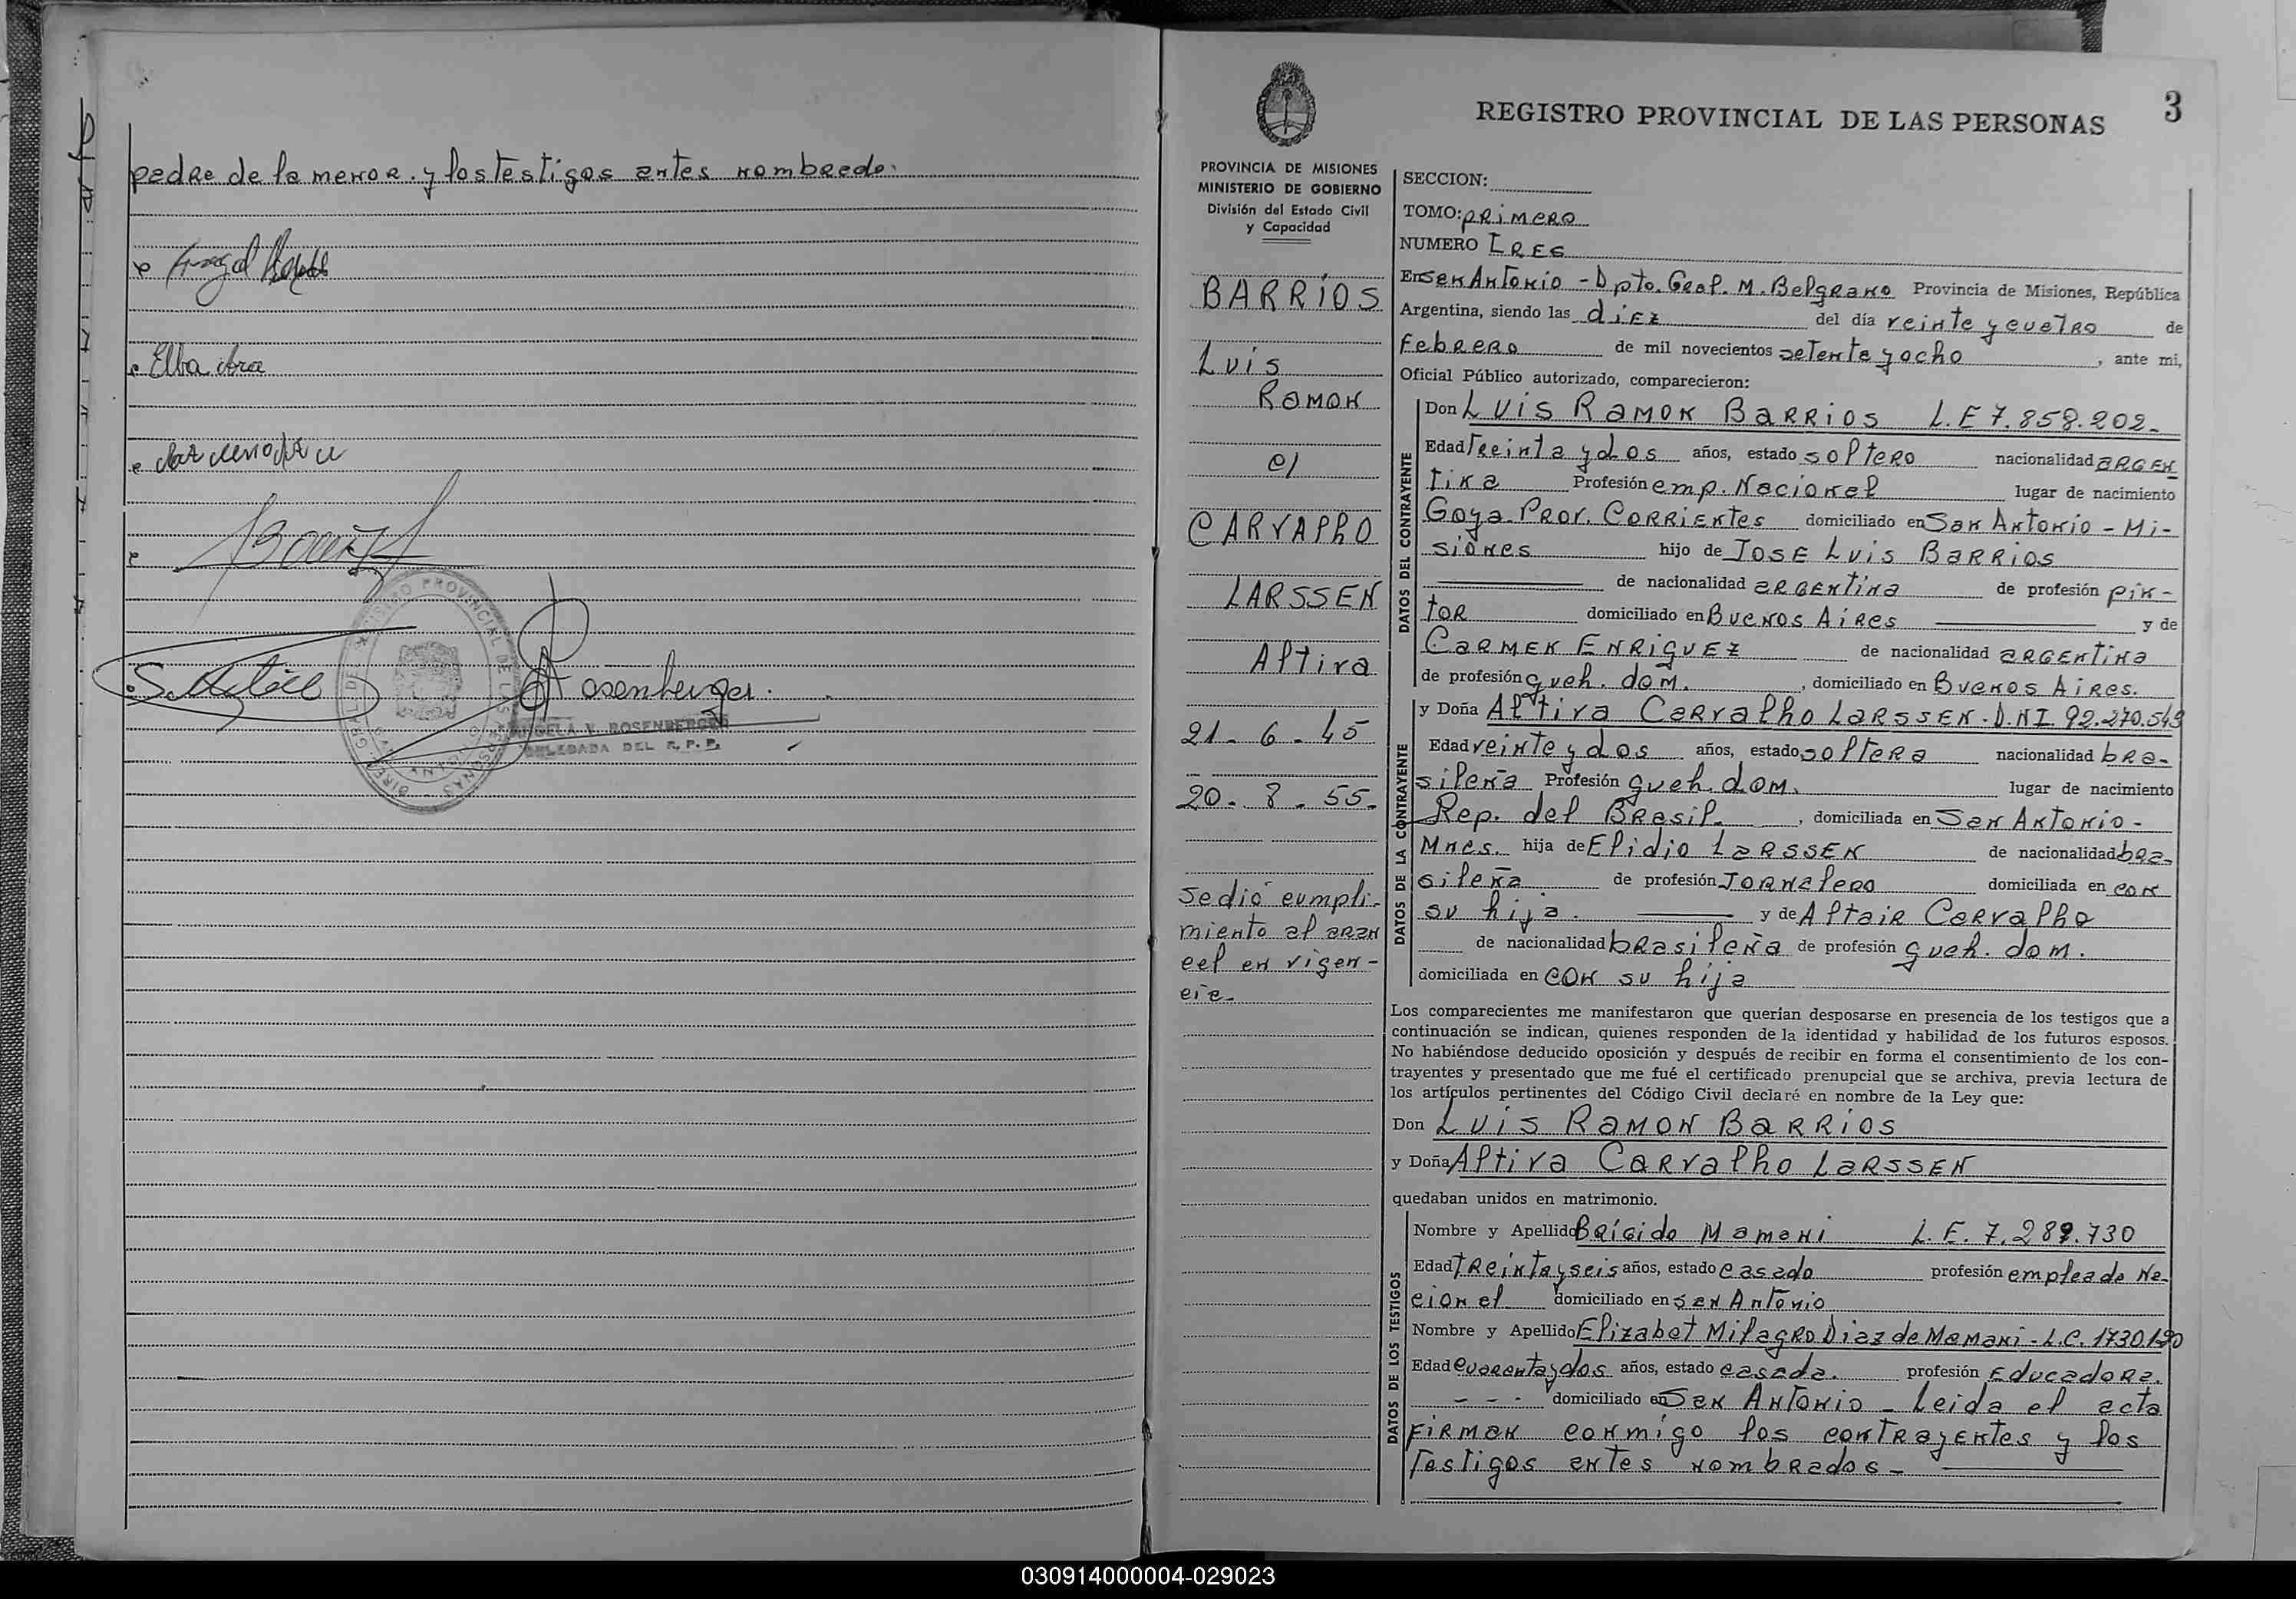 padre de la menor y los testigos antes nombrado.
Elba
Rosenberger.
ANGELA V. ROSENBERGER
DELEGADA DEL R. P. P.
3
REGISTRO PROVINCIAL DE LAS PERSONAS
PROVINCIA DE MISIONES
MINISTERIO DE GOBIERNO
División del Estado Civil
y Capacidad
BARRIOS
Luis
Ramon
c/
CARVALHO
LARSSEN
Altiva
21-6-45
20-8-55-
Se dió cumpli-
miento al aran
cel en vigen-
cia-
SECCION:
TOMO: primero
NUMERO Tres
En San Antonio - Dpto. Gral. M. Belgrano Provincia de Misiones, República
Argentina, siendo las diez del día veinte y cuatro de
Febrero de mil novecientos setenta y ocho, ante mi,
Oficial Público autorizado, comparecieron:
DATOS DEL CONTRAYENTE
Don Luis Ramon Barrios L.E 7.858.202-
Edad treinta y dos años, estado soltero nacionalidad argen
tina Profesión emp. Nacional lugar de nacimiento
Goya-Prov. Corrientes domiciliado en San Antonio - Mi-
siones hijo de Jose Luis Barrios
de nacionalidad argentina de profesión pin-
tor domiciliado en Buenos Aires y de
Carmen Enriquez de nacionalidad argentina
de profesión queh. dom., domiciliado en Buenos Aires.
DATOS DE LA CONTRAYENTE
y Doña Altiva Carvalho Larssen-D.N.I. 92.270.549
Edad veinte y dos años, estado soltera nacionalidad bra-
sileña Profesión queh. dom. lugar de nacimiento
Rep. del Brasil, domiciliada en San Antonio-
Mnes. hija de Elidio Larssen de nacionalidad bra-
sileña de profesión Jornalero domiciliada en con
su hija. y de Altair Carvalho
de nacionalidad brasileña de profesión queh. dom.
domiciliada en con su hija
Los comparecientes me manifestaron que querían desposarse en presencia de los testigos que a
continuación se indican, quienes responden de la identidad y habilidad de los futuros esposos.
No habiéndose deducido oposición y después de recibir en forma el consentimiento de los con-
trayentes y presentado que me fué el certificado prenupcial que se archiva, previa lectura de
los artículos pertinentes del Código Civil declaré en nombre de la Ley que:
Don Luis Ramon Barrios
y Doña Altiva Carvalho Larssen
quedaban unidos en matrimonio.
DATOS DE LOS TESTIGOS
Nombre y Apellido Brígido Mamani L.E. 7.289.730
Edad treinta y seis años, estado casado profesión empleado Na-
cional domiciliado en San Antonio
Nombre y Apellido Elizabet Milagro Diaz de Mamani - L.C. 1730.190
Edad cuarenta y dos años, estado casada. profesión Educadora.
- - - domiciliado en San Antonio - Leida el acta
firman conmigo los contrayentes y los
testigos antes nombrados-
030914000004-029023